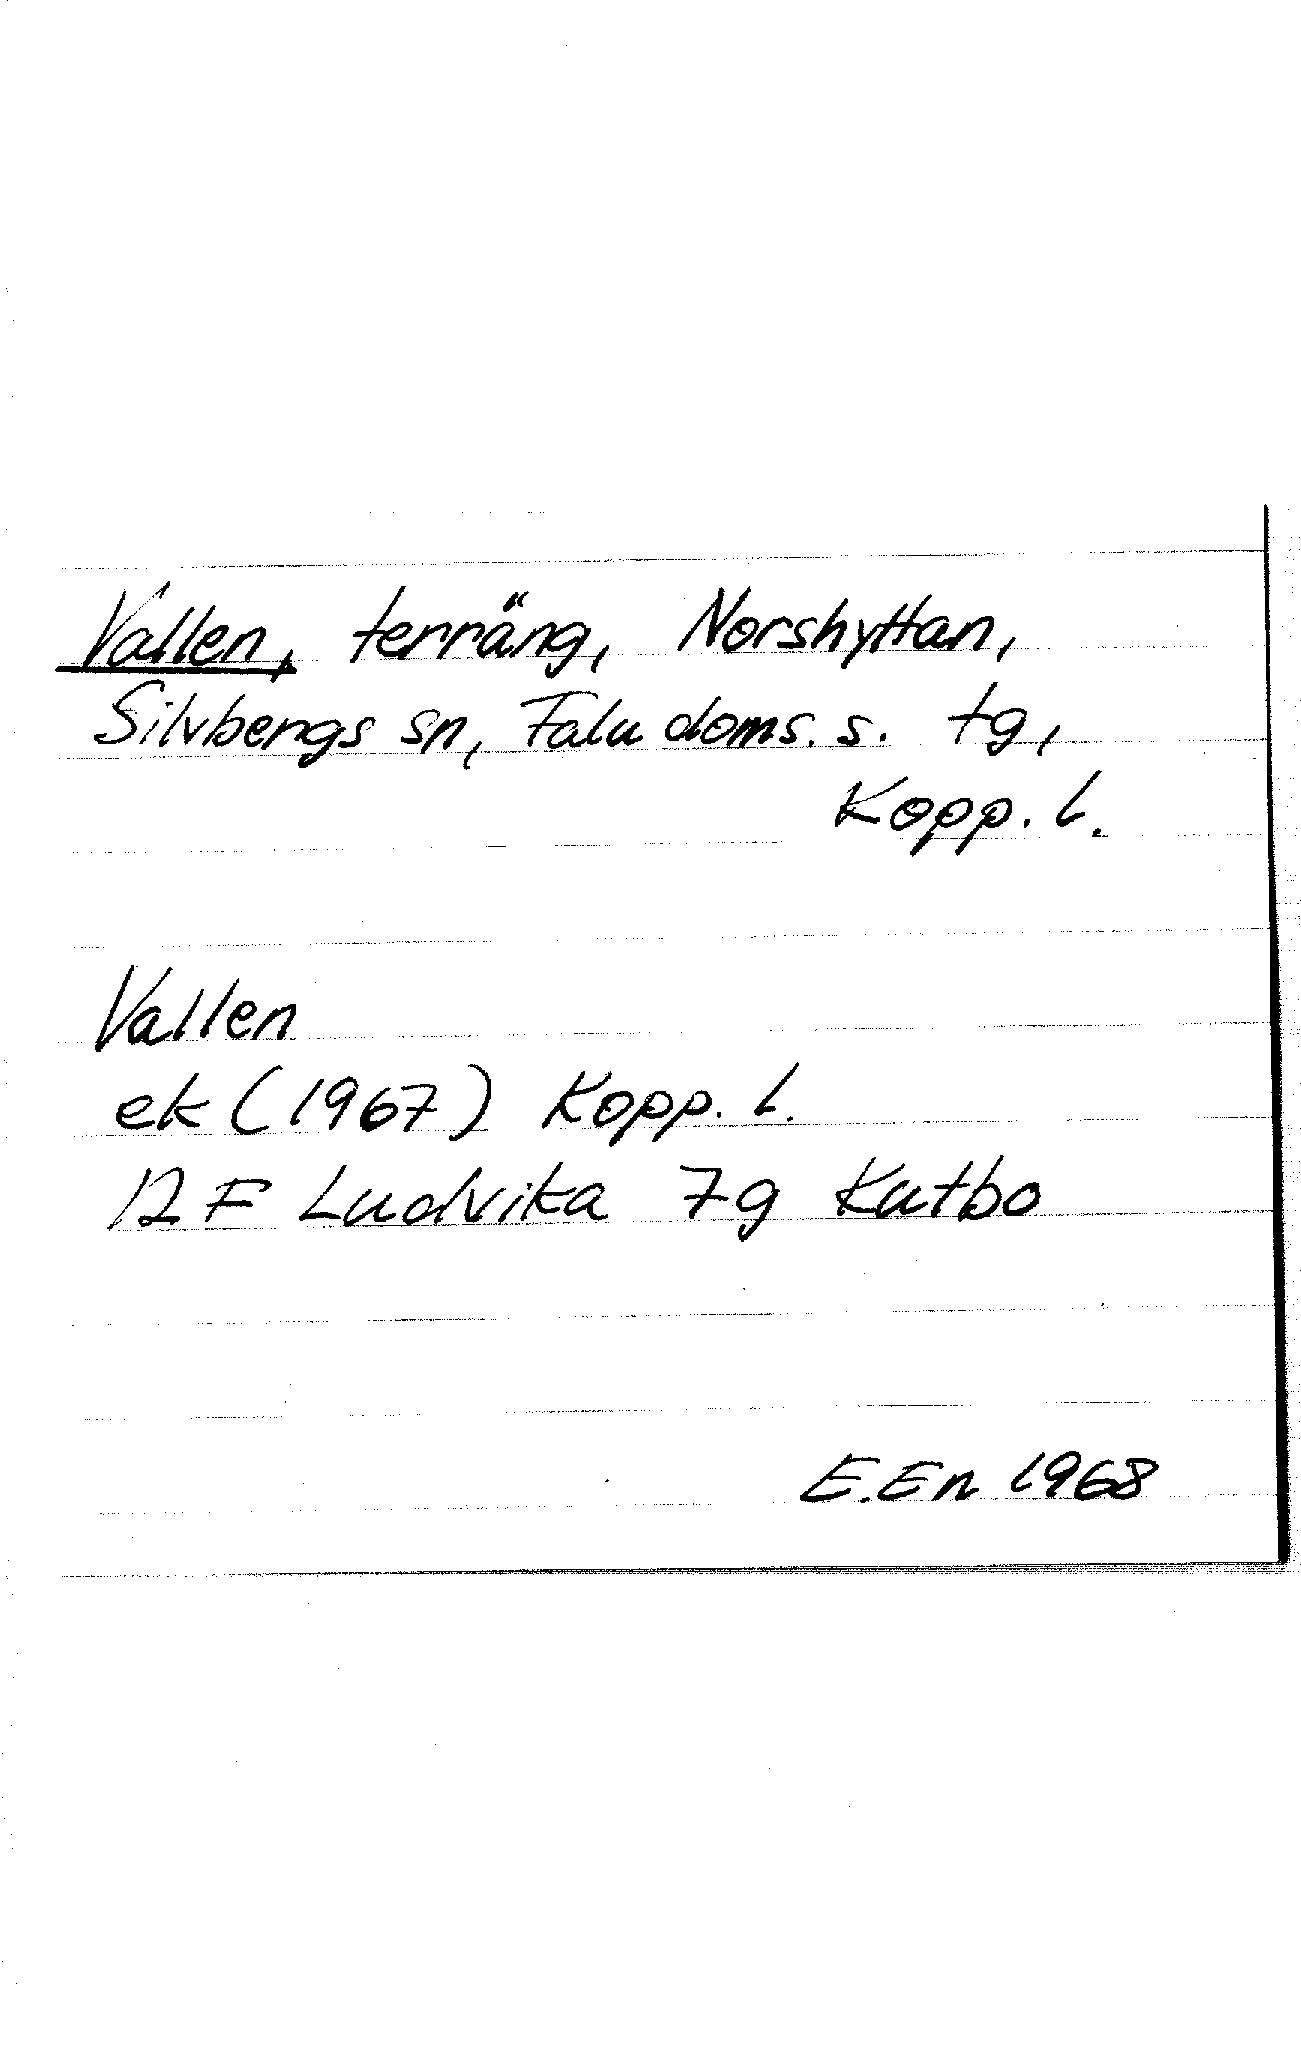 Vallen, terräng, Norshyttan,
Silvbergs sn, Falu doms. s. tg,
Kopp. l.
Vallen
ek (1967) Kopp. l.
12 F Ludvika 7g Kutbo
E.En 1968